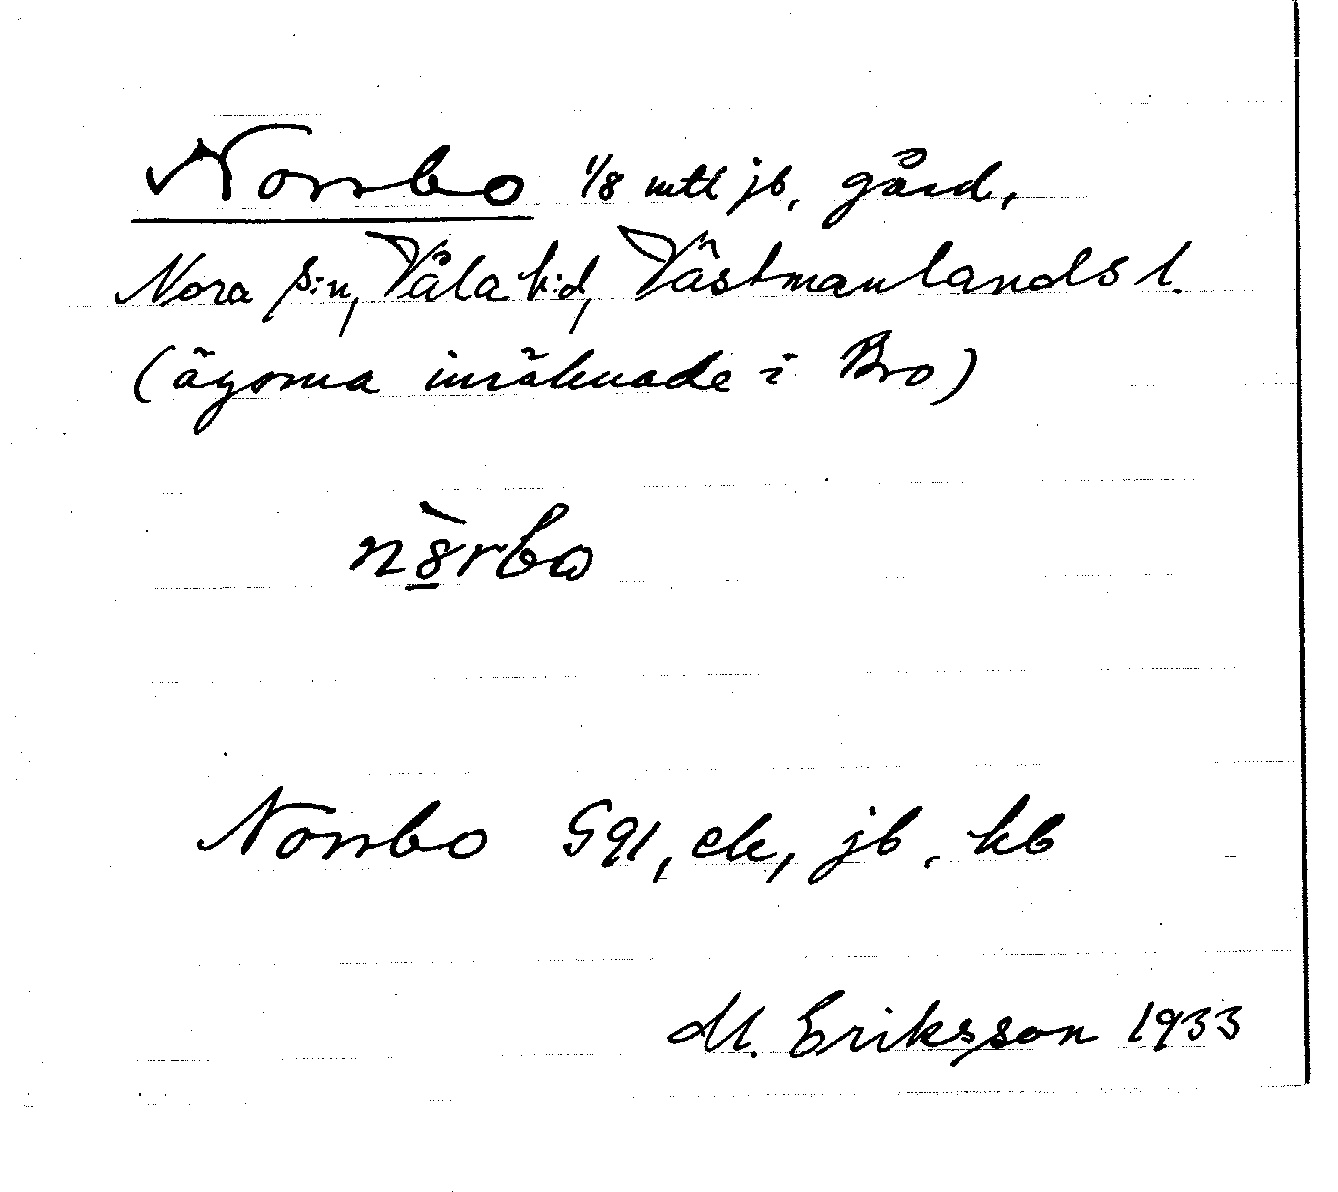 Norrbo 1/8 mtl jb, gård,
Nora s:n, Våla h:d, Västmanlands l.
(ägorna inräknade i Bro)
Norrbo GGl, ek, jb, kb
M. Eriksson 1933